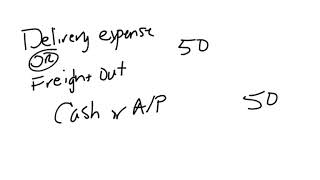 Delivery expense 50
OR
Freight Out
Cash or A/P 50